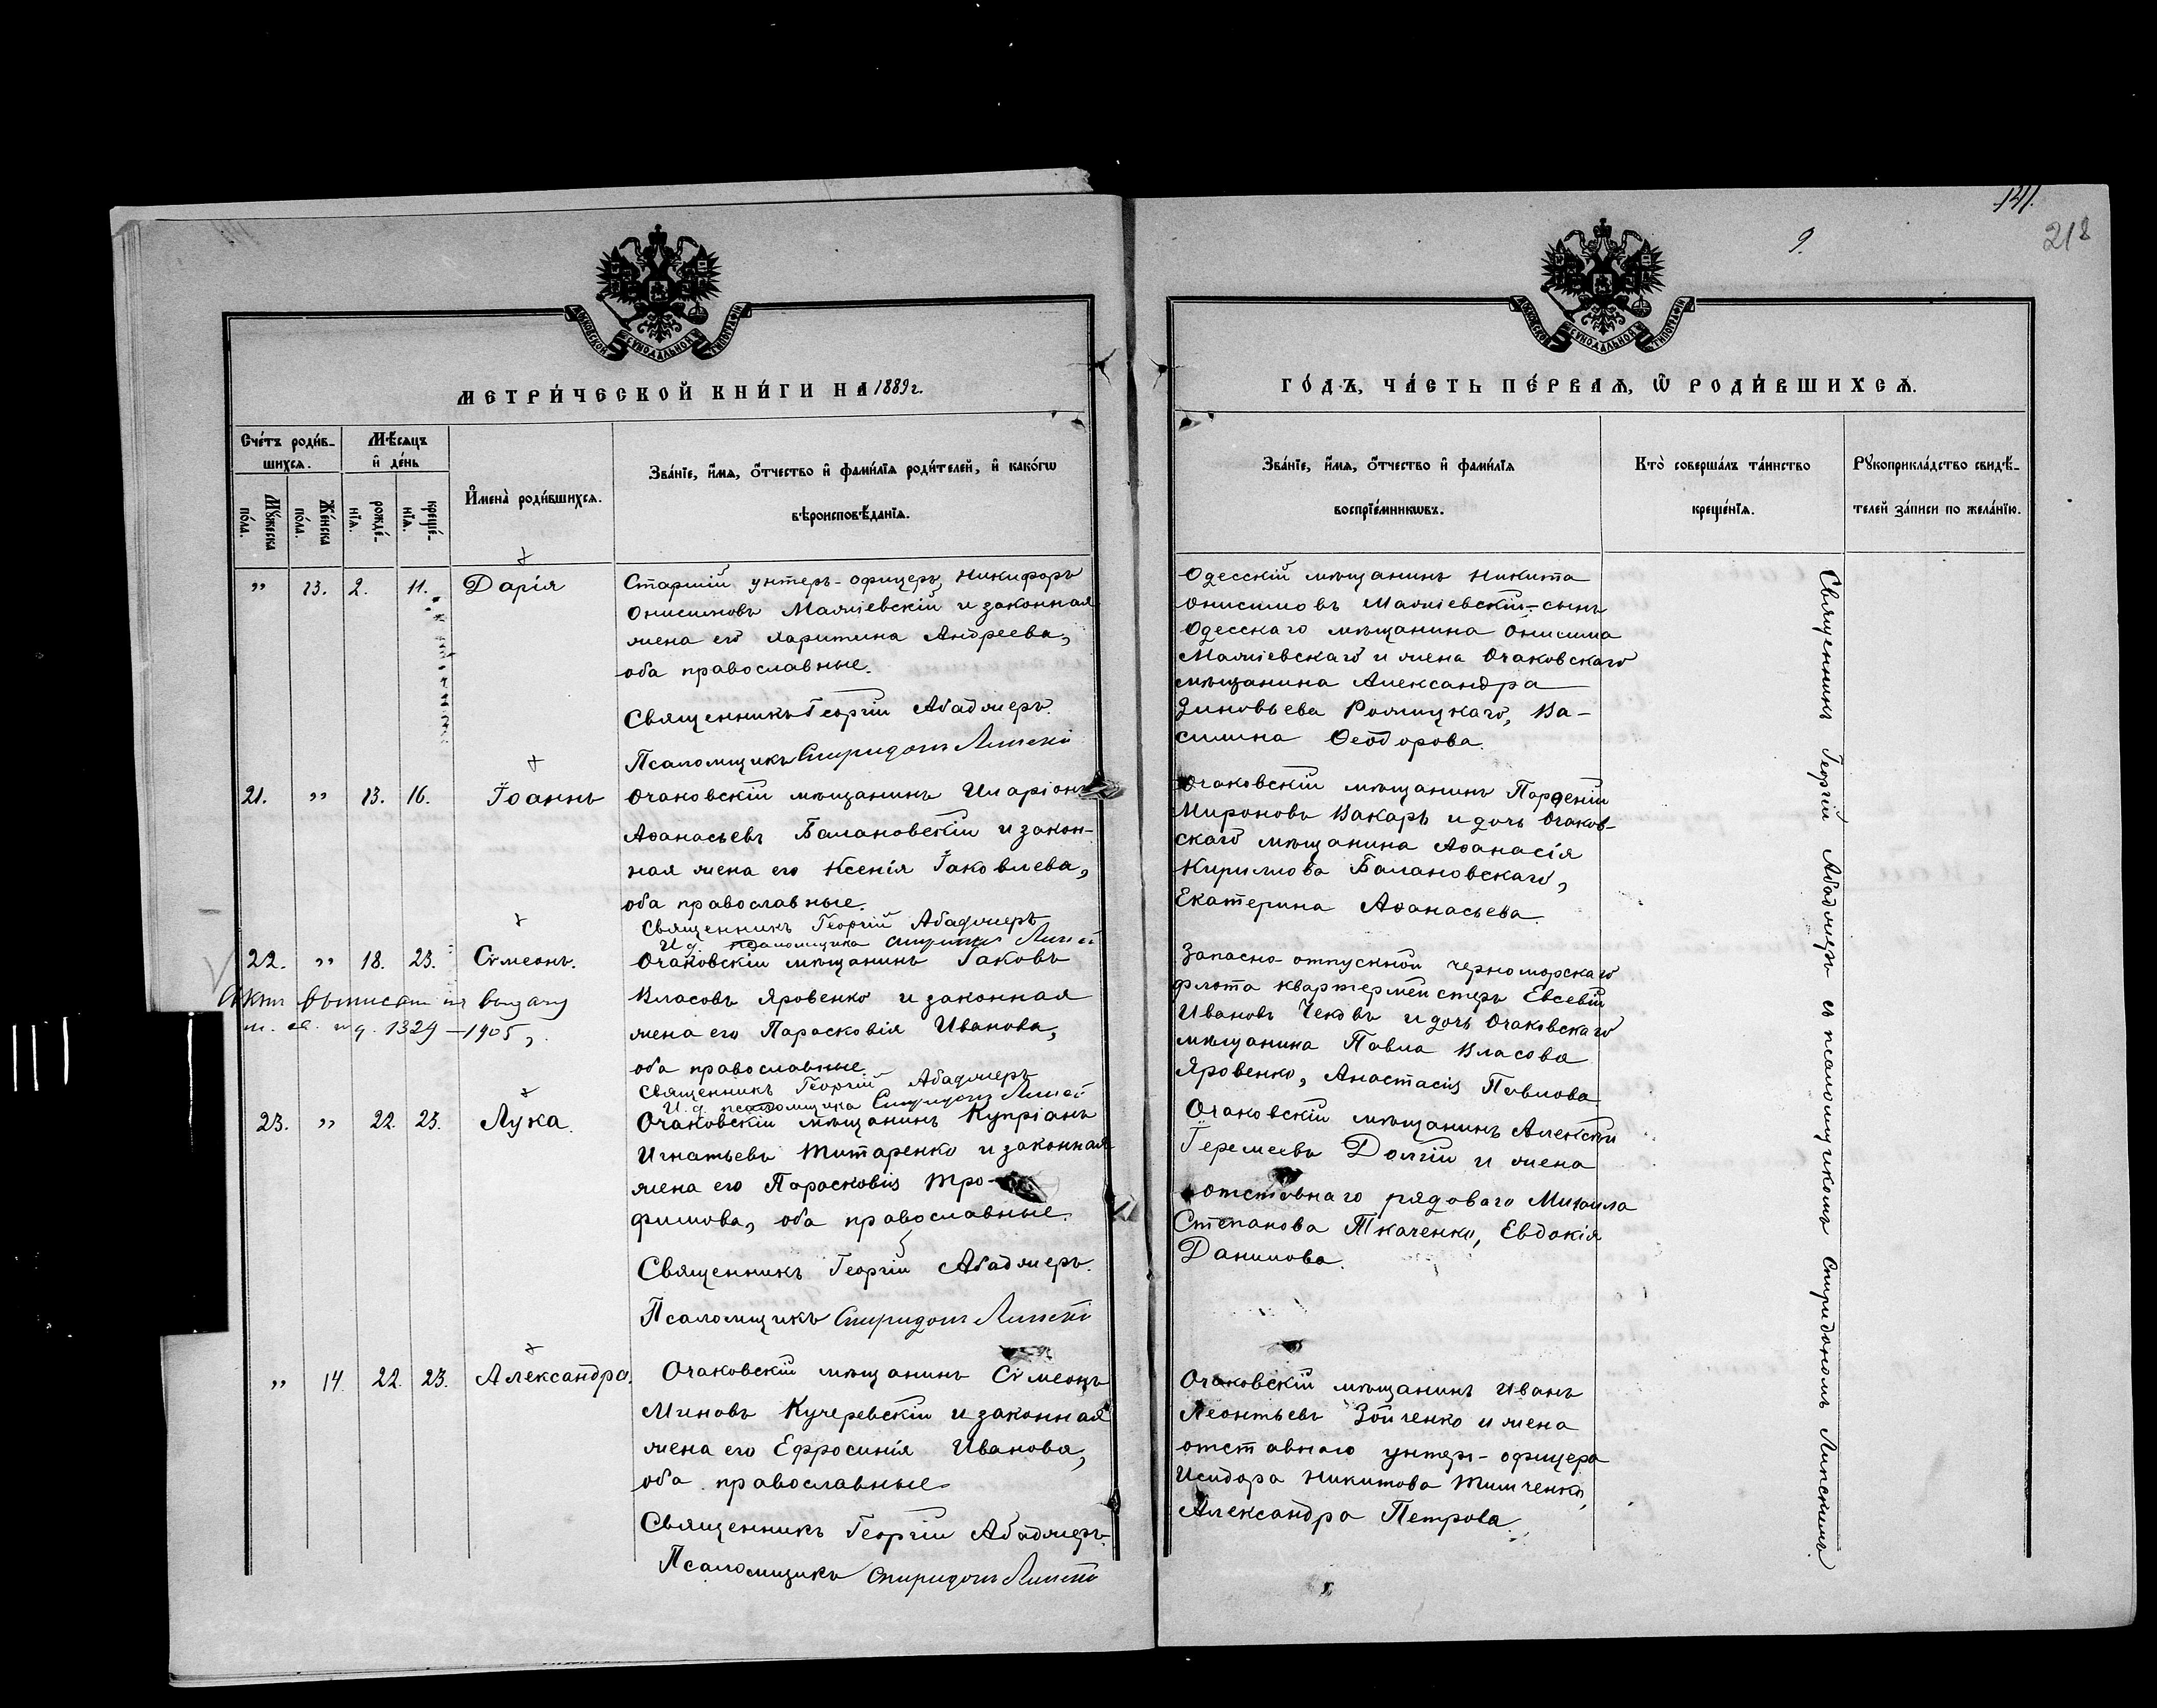 141.
218
9.
МОСКОВСКОЙ СѴНОДАЛЬНОЙ ТИПОГРАФІИ
МОСКОВСКОЙ СѴНОДАЛЬНОЙ ТИПОГРАФІИ
МЕТРИ́ЧЕСКОЙ КНИ́ГИ НА 1889 г.
ГО́ДЪ, ЧА́СТЬ ПЕ́РВАѦ, Ѿ РОДИ́ВШИХСѦ.
Сче́тъ роди́в-
шихсѧ.
Мꙋ́жеска по́ла.
Же́нска по́ла.
Мѣ́сѧцъ
и҆ де́нь
рожде́-нїѧ.
креще́-нїѧ.
И҆мена̀ роди́вшихсѧ.
Зва́нїе, и҆́мѧ, ѻ҆́тчество и҆ фами́лїѧ роди́телей, и҆ како́гѡ
вѣроисповѣ́данїѧ.
Зва́нїе, и҆́мѧ, ѻ҆́тчество и҆ фами́лїѧ
воспрїе́мникѡвъ.
Кто̀ соверша́лъ та́инство
креще́нїѧ.
Рꙋкоприкла́дство свидѣ́-
телей за́писи по жела́нїю.
" 13. 2. 11. Дарія
Старшій унтеръ-офицеръ Никифоръ
Онисимовъ Маяліевскій и законная
жена его Харитина Андреева,
оба православные.
Священникъ Георгій Абаджеръ.
Псаломщикъ Спиридонъ Липскій
Одесскій мѣщанинъ Никита
Онисимовъ Маяліевскій - сынъ
Одесскаго мѣщанина Онисима
Маяліевскаго и жена Очаковскаго
мѣщанина Александра
Зиновьева Ролицкаго, Ва-
силина Ѳеодорова.
21. " 13. 16. Іоаннъ
Очаковскій мѣщанинъ Иларіонъ
Аѳанасьевъ Балановскій и закон-
ная жена его Ксенія Іаковлева,
оба православные.
Священникъ Георгій Абаджеръ
И. д. псаломщика Спиридонъ Липскій
Очаковскій мѣщанинъ Парѳеній
Мироновъ Вакаръ и дочь Очаков-
скаго мѣщанина Аѳанасія
Кириллова Балановскаго,
Екатерина Аѳанасьева.
22. " 18. 23. Сѵмеонъ.
Актъ выписанъ въ выдачу
м. св. по д. 1329 - 1905,
Очаковскій мѣщанинъ Іаковъ
Власовъ Яровенко и законная
жена его Парасковія Иванова,
оба православные
Священникъ Георгій Абаджеръ
И. д. псаломщика Спиридонъ Липскій
Запасно-отпускной черноморскаго
флота квартермейстеръ Евсевій
Ивановъ Чековъ и дочь Очаковскаго
мѣщанина Павла Власова
Яровенко, Анастасія Павлова
23. " 22. 23. Лука.
Очаковскій мѣщанинъ Купріанъ
Игнатьевъ Титаренко и законная
жена его Парасковія Тро-
фимова, оба православные.
Священникъ Георгій Абаджеръ.
Псаломщикъ Спиридонъ Липскій
Очаковскій мѣщанинъ Алексѣй
Іеремеевъ Долгій и жена
отставнаго рядоваго Михаила
Степанова Ткаченко, Евдокія
Данилова.
" 14. 22. 23. Александра.
Очаковскій мѣщанинъ Сѵмеонъ
Миновъ Кучеревскій и законная
жена его Ефросинія Иванова,
оба православные
Священникъ Георгій Абаджеръ.
Псаломщикъ Спиридонъ Липскій
Очаковскій мѣщанинъ Иванъ
Леонтьевъ Зойченко и жена
отставнаго унтеръ-офицера
Исидора Никитова Тимченко,
Александра Петрова.
Священникъ Георгій Абаджеръ съ псаломщикомъ Спиридономъ Липскимъ